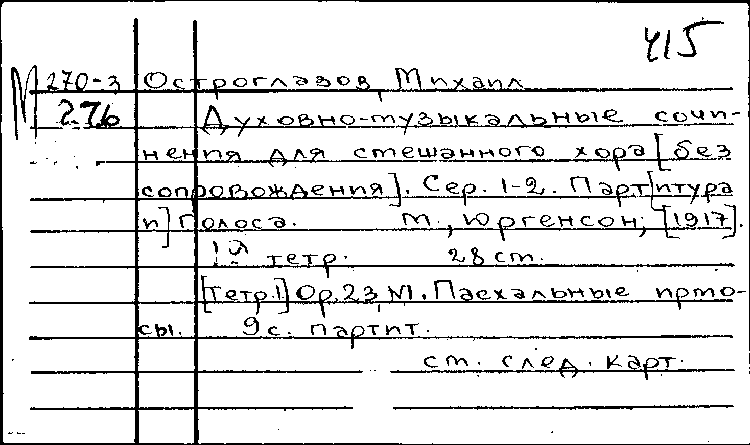 415
М 270-3 Остроглазов, Михаил
276 Духовно-музыкальные сочи-
нения для смешанного хора [без
сопровождения]. Сер. 1-2. Парт[итура
и] голоса. М., Юргенсон, [1917].
тетр. 28 см.
[Тетр.1] Op.23, №1. Пасхальные ирмо-
сы. 9 с. партит.
см. след. карт.